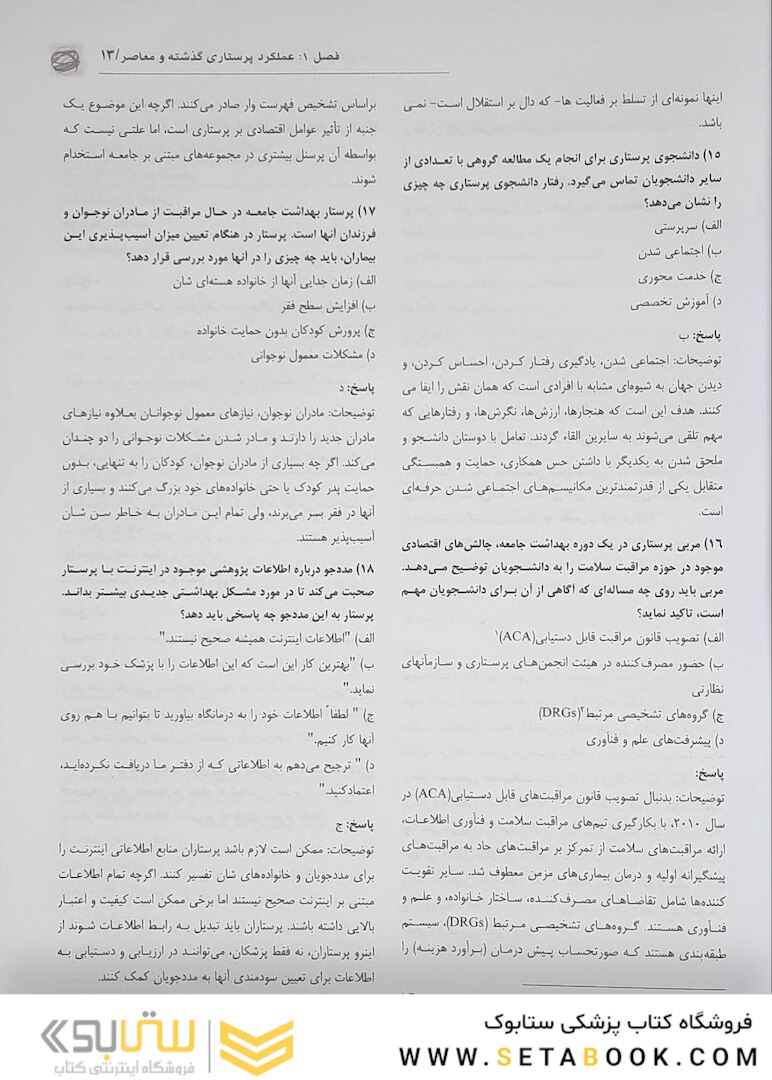 فصل ۱: عملکرد پرستاری گذشته و معاصر/۱۳
اینها نمونه‌ای از تسلط بر فعالیت ها- که دال بر استقلال است- نمی
باشد.
۱۵) دانشجوی پرستاری برای انجام یک مطالعه گروهی با تعدادی از
سایر دانشجویان تماس می‌گیرد. رفتار دانشجوی پرستاری چه چیزی
را نشان می‌دهد؟
الف) سرپرستی
ب) اجتماعی شدن
ج) خدمت محوری
د) آموزش تخصصی
پاسخ: ب
توضیحات: اجتماعی شدن، یادگیری رفتار کردن، احساس کردن، و
دیدن جهان به شیوه‌ای مشابه با افرادی است که همان نقش را ایفا می
کنند. هدف این است که هنجارها، ارزش‌ها، نگرش‌ها، و رفتارهایی که
مهم تلقی می‌شوند به سایرین القاء گردند. تعامل با دوستان دانشجو و
ملحق شدن به یکدیگر با داشتن حس همکاری، حمایت و همبستگی
متقابل یکی از قدرتمندترین مکانیسم‌های اجتماعی شدن حرفه‌ای
است.
۱۶) مربی پرستاری در یک دوره بهداشت جامعه، چالش‌های اقتصادی
موجود در حوزه مراقبت سلامت را به دانشجویان توضیح می‌دهد.
مربی باید روی چه مساله‌ای که آگاهی از آن برای دانشجویان مهم
است، تاکید نماید؟
الف) تصویب قانون مراقبت قابل دستیابی(ACA)۱
ب) حضور مصرف‌کننده در هیئت انجمن‌های پرستاری و سازمآنهای
نظارتی
ج) گروه‌های تشخیصی مرتبط۲(DRGs)
د) پیشرفت‌های علم و فنآوری
پاسخ:
توضیحات: بدنبال تصویب قانون مراقبت‌های قابل دستیابی(ACA) در
سال ۲۰۱۰، با بکارگیری تیم‌های مراقبت سلامت و فنآوری اطلاعات،
ارائه مراقبت‌های سلامت از تمرکز بر مراقبت‌های حاد به مراقبت‌های
پیشگیرانه اولیه و درمان بیماری‌های مزمن معطوف شد. سایر تقویت
کننده‌ها شامل تقاضاهای مصرف‌کننده، ساختار خانواده، و علم و
فنآوری هستند. گروه‌های تشخیصی مرتبط (DRGs)، سیستم
طبقه‌بندی هستند که صورتحساب پیش درمان (برآورد هزینه) را
براساس تشخیص فهرست وار صادر می‌کنند. اگرچه این موضوع یک
جنبه از تأثیر عوامل اقتصادی بر پرستاری است، اما علتی نیست که
بواسطه آن پرسنل بیشتری در مجموعه‌های مبتنی بر جامعه استخدام
شوند.
۱۷) پرستار بهداشت جامعه در حال مراقبت از مادران نوجوان و
فرزندان آنها است. پرستار در هنگام تعیین میزان آسیب‌پذیری این
بیماران، باید چه چیزی را در آنها مورد بررسی قرار دهد؟
الف) زمان جدایی آنها از خانواده هسته‌ای شان
ب) افزایش سطح فقر
ج) پرورش کودکان بدون حمایت خانواده
د) مشکلات معمول نوجوانی
پاسخ: د
توضیحات: مادران نوجوان، نیازهای معمول نوجوانان بعلاوه نیازهای
مادران جدید را دارند و مادر شدن مشکلات نوجوانی را دو چندان
می‌کند. اگر چه بسیاری از مادران نوجوان، کودکان را به تنهایی، بدون
حمایت پدر کودک یا حتی خانواده‌های خود بزرگ می‌کنند و بسیاری از
آنها در فقر بسر می‌برند، ولی تمام این مادران به خاطر سن شان
آسیب‌پذیر هستند.
۱۸) مددجو درباره اطلاعات پژوهشی موجود در اینترنت با پرستار
صحبت می‌کند تا در مورد مشکل بهداشتی جدیدی بیشتر بداند.
پرستار به این مددجو چه پاسخی باید دهد؟
الف) "اطلاعات اینترنت همیشه صحیح نیستند."
ب) "بهترین کار این است که این اطلاعات را با پزشک خود بررسی
نماید."
ج) " لطفاً اطلاعات خود را به درمانگاه بیاورید تا بتوانیم با هم روی
آنها کار کنیم."
د) " ترجیح می‌دهم به اطلاعاتی که از دفتر ما دریافت نکرده‌اید،
اعتمادکنید."
پاسخ: ج
توضیحات: ممکن است لازم باشد پرستاران منابع اطلاعاتی اینترنت را
برای مددجویان و خانواده‌های شان تفسیر کنند. اگرچه تمام اطلاعات
مبتنی بر اینترنت صحیح نیستند اما برخی ممکن است کیفیت و اعتبار
بالایی داشته باشند. پرستاران باید تبدیل به رابط اطلاعات شوند از
اینرو پرستاران، نه فقط پزشکان، می‌توانند در ارزیابی و دستیابی به
اطلاعات برای تعیین سودمندی آنها به مددجویان کمک کنند.
فروشگاه کتاب پزشکی ستابوک
WWW.SETABOOK.COM
ستابوک
فروشگاه اینترنتی کتاب